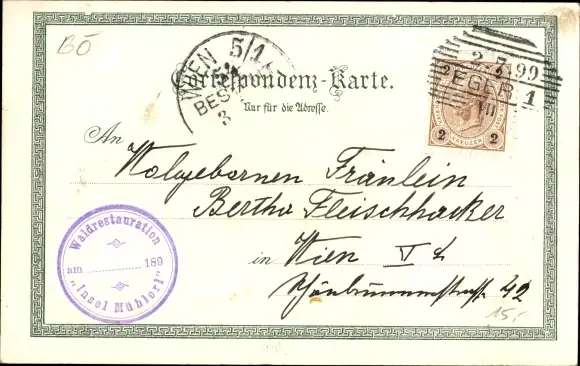 BÖ
WIEN 5/1
BEST
3
2.7.99
EGER 1
Correspondenz-Karte.
Nur für die Adresse.
2 KREUZER 2
An Wolgebornen Fräulein
Bertha Fleischhacker
in Wien V
Schönbrunnerstraße 42
15,-
Waldrestauration
am 189
"Insel Mühlerl"